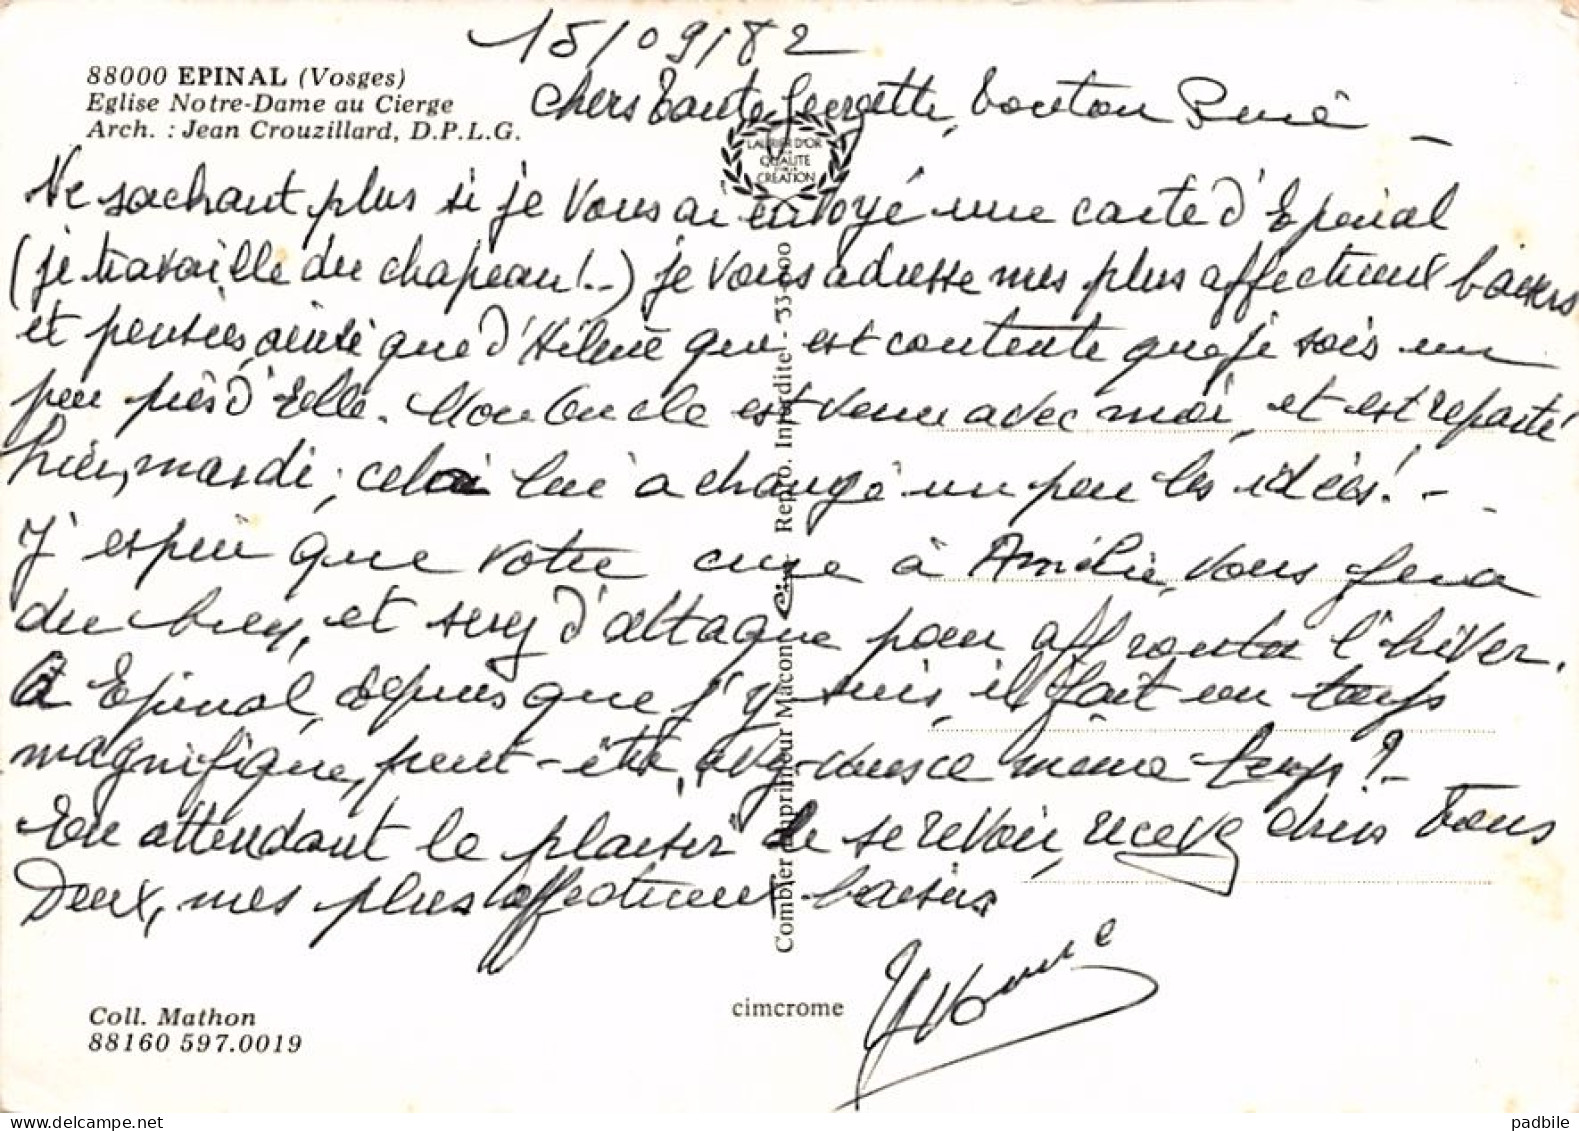 15/09/82
88000 EPINAL (Vosges)
Eglise Notre-Dame au Cierge
Arch. : Jean Crouzillard, D.P.L.G.
Chers Tante Georgette, Tonton René –
LAURIER D'OR
QUALITE
CREATION
Ne sachant plus si je vous ai envoyé une carte d'Epinal
(je travaille du chapeau!..) je vous adresse mes plus affectueux baisers
et pensées, ainsi que d'Hélène qui est contente que je sois un
peu près d'Elle. Mon Oncle est venu avec moi, et est reparti
hier, mardi ; cela lui a changé un peu les idées! –
J'espère que votre cure à Amélie, vous fera
du bien, et serez d'attaque pour affronter l'hiver.
A Epinal, depuis que j'y suis, il fait un temps
magnifique, peut-être, avez-vous ce même temps ? –
En attendant le plaisir de se revoir, recevez chers Tous
Deux, mes plus affectueux baisers
Yvonne
Combier Imprimeur Macon Cim Repro. Interdite -
cimcrome
Coll. Mathon
88160 597.0019
padbile